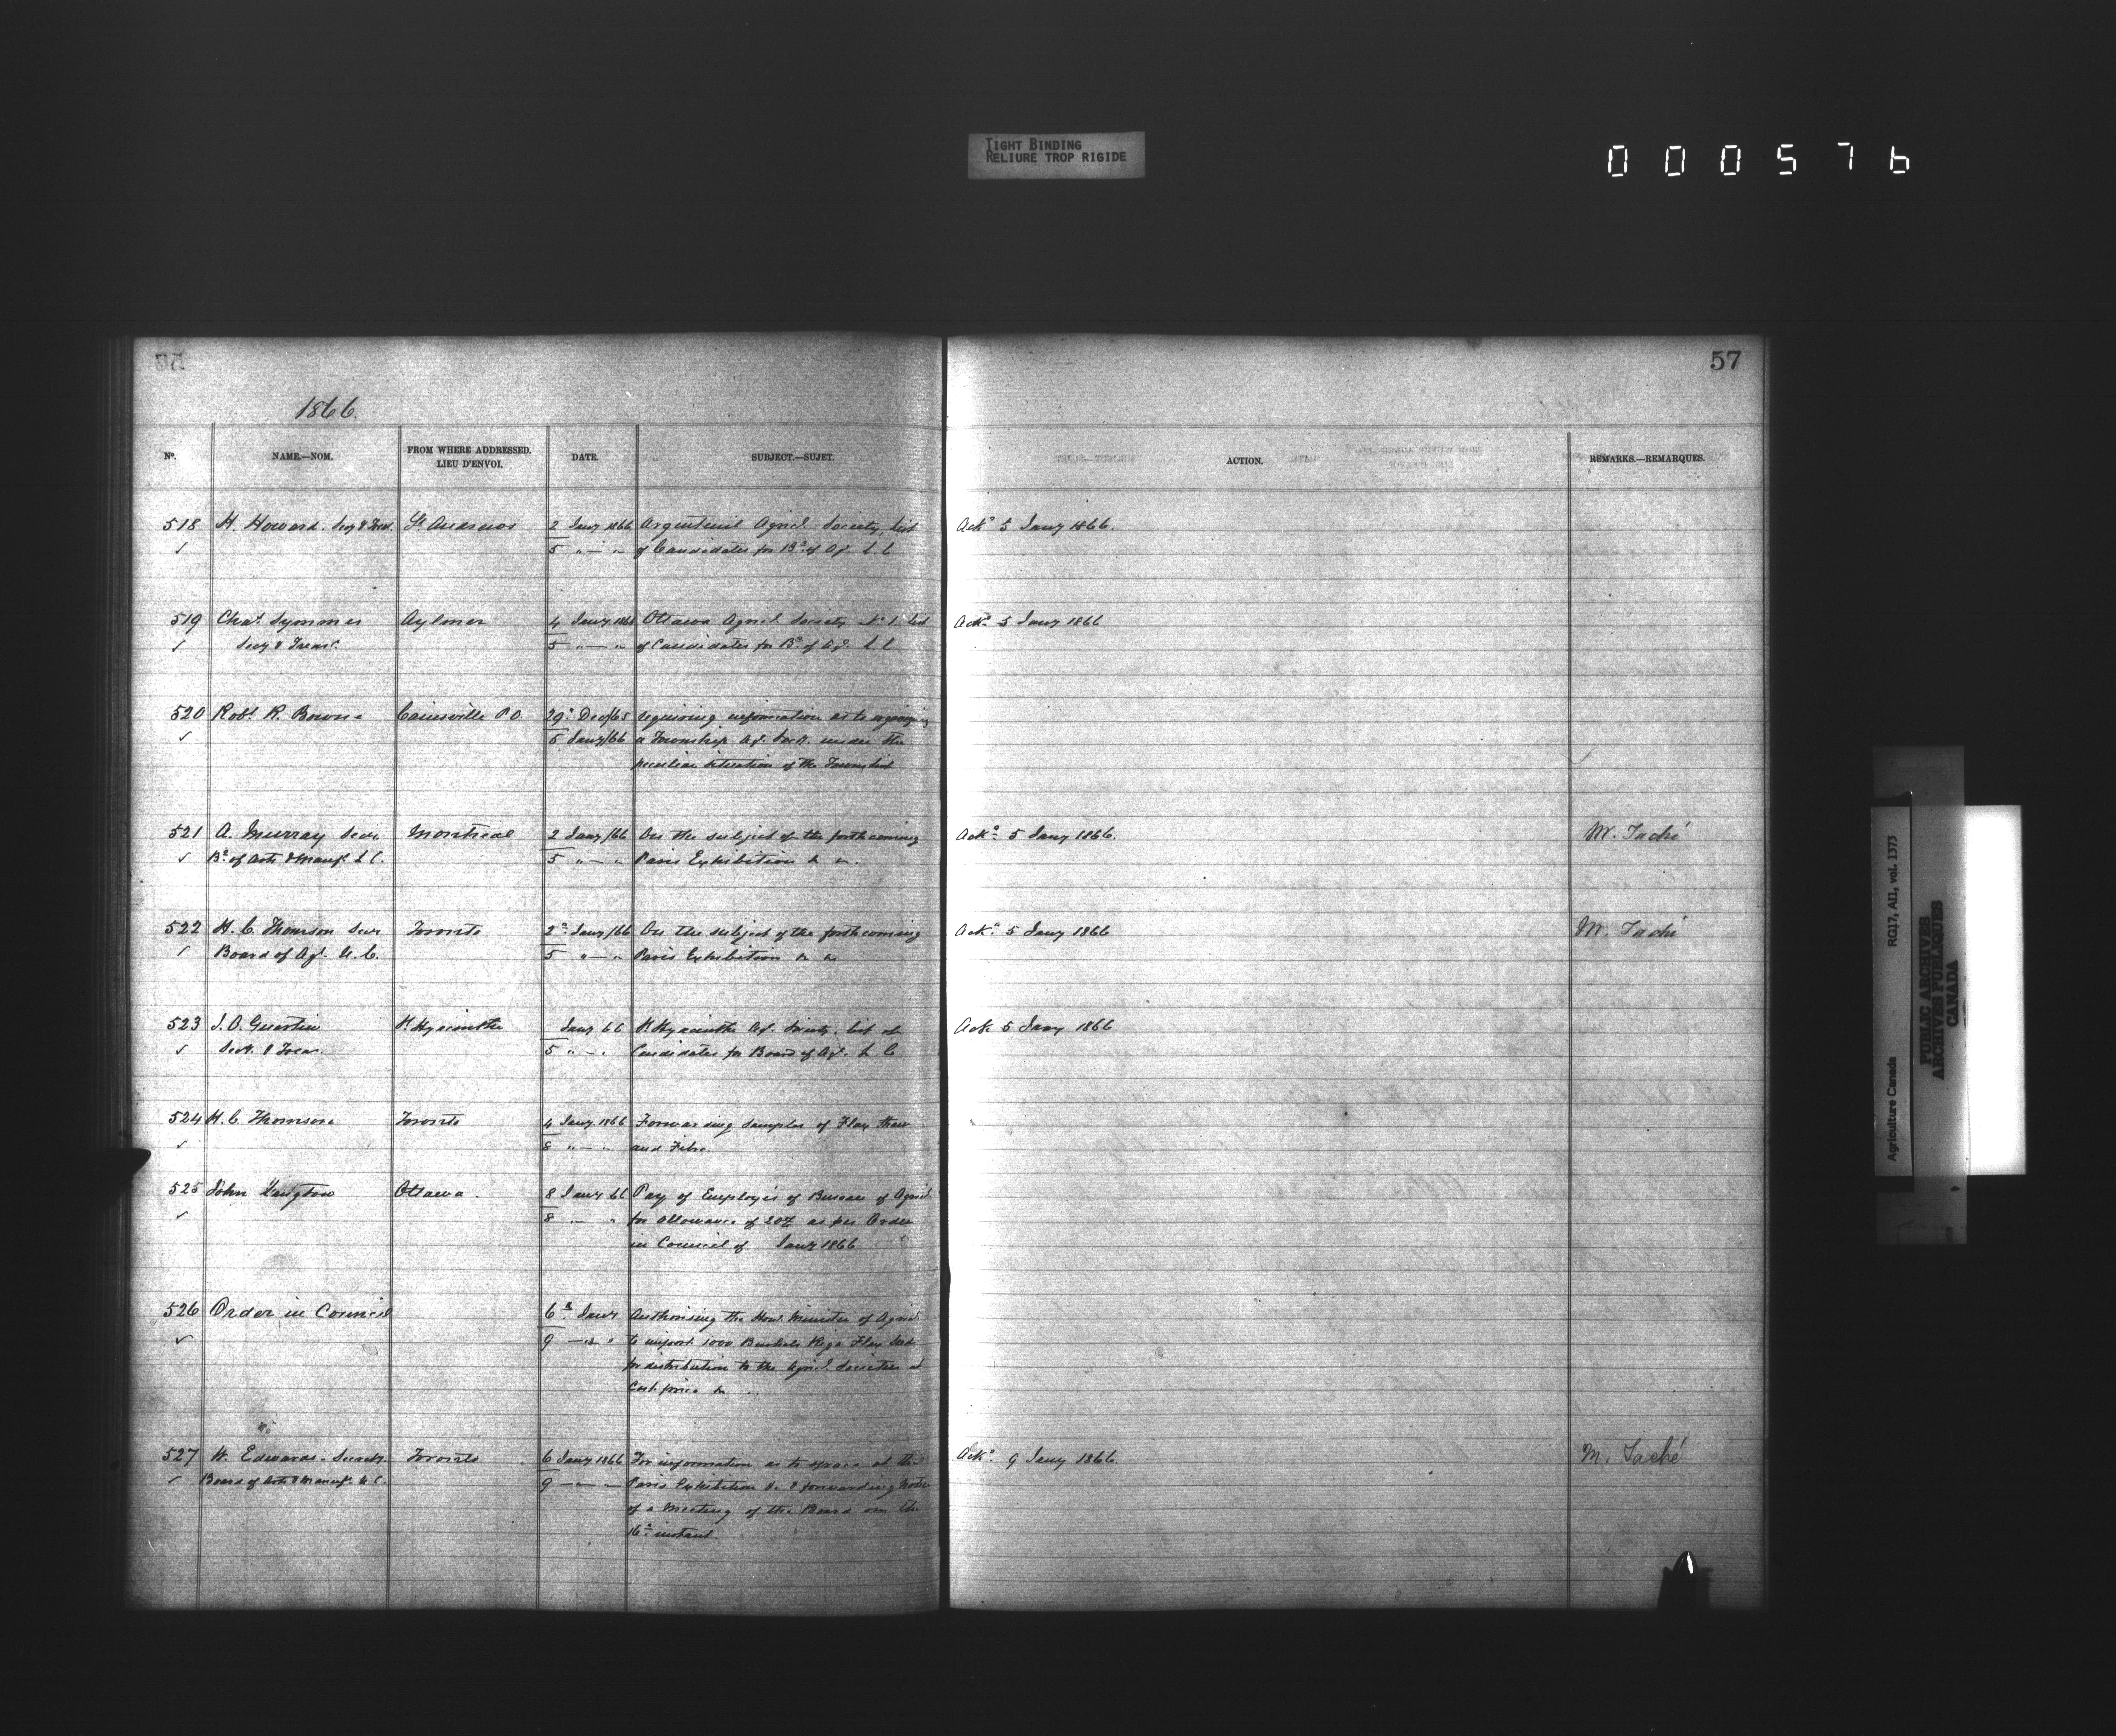 TIGHT BINDING
RELIURE TROP RIGIDE
000576
57
1866.
No. NAME.—NOM. FROM WHERE ADDRESSED. LIEU D'ENVOI. DATE. SUBJECT.—SUJET. ACTION. REMARKS.—REMARQUES.
518 H. Howard. Secy & Treas. St. Andrews 2 Jany 1866 Argenteuil Agricl. Society, list Ackd 5 Jany 1866.
✓ 5 " — " of Candidates for Bd. of Agl. L C
519 Chas. Symmes Aylmer 4 Jany 1866 Ottawa Agricl. Society No. 1 list Ackd 5 Jany 1866
✓ Secy & Treasr. 5 " — " of Candidates for Bd. of Agl. L C
520 Robt. R. Bown Cainsville P.O. 29th Dec/65 requiring information as to organizing
✓ 5 Jany/66 a Township Agl. Socy. under the
peculiar situation of the Township
521 A. Murray Secy. Montreal 2 Jany/66 On the subject of the forthcoming Ackd 5 Jany 1866. M. Taché
✓ Bd. of Arts & Manufs. L C. 5 " — " Paris Exhibition & c.
522 H. C. Thomson Secy Toronto 2d Jany/66 On the subject of the forthcoming Ackd. 5 Jany 1866 M. Taché
✓ Board of Agl. U. C. 5 " — " Paris Exhibition & c
523 J. O. Guertin St. Hyacinthe Jany 66 St. Hyacinthe Agl. Society. list of Ack 5 Jany 1866
✓ Secy. & Treas. 5 " — " Candidates for Board of Agl. L C
524 H. C. Thomson Toronto 4 Jany 1866 Forwarding samples of Flax Straw
✓ 8 " — " and Fibre
525 John Langton Ottawa. 8 Jany 66 Pay of Employés of Bureau of Agricl.
✓ 8 — " for allowance of 20% as per Order
in Council of Jany 1866
526 Order in Council 6th Jany Authorising the Honl. Minister of Agricl.
✓ 9 — " " to import 1000 Bushels Riga Flax Seed
for distribution to the Agricl. Societies at
Cost price &c
527 W. Edwards. Secrety. Toronto 6 Jany 1866 For information as to space at the Ackd. 9 Jany 1866. M. Taché
✓ Board of Arts & Manufs. U C. 9 — " — Paris Exhibition &c. & forwarding Notice
of a Meeting of the Board on the
16th instant.
Agriculture Canada RG17, AII, vol. 1373
PUBLIC ARCHIVES
ARCHIVES PUBLIQUES
CANADA